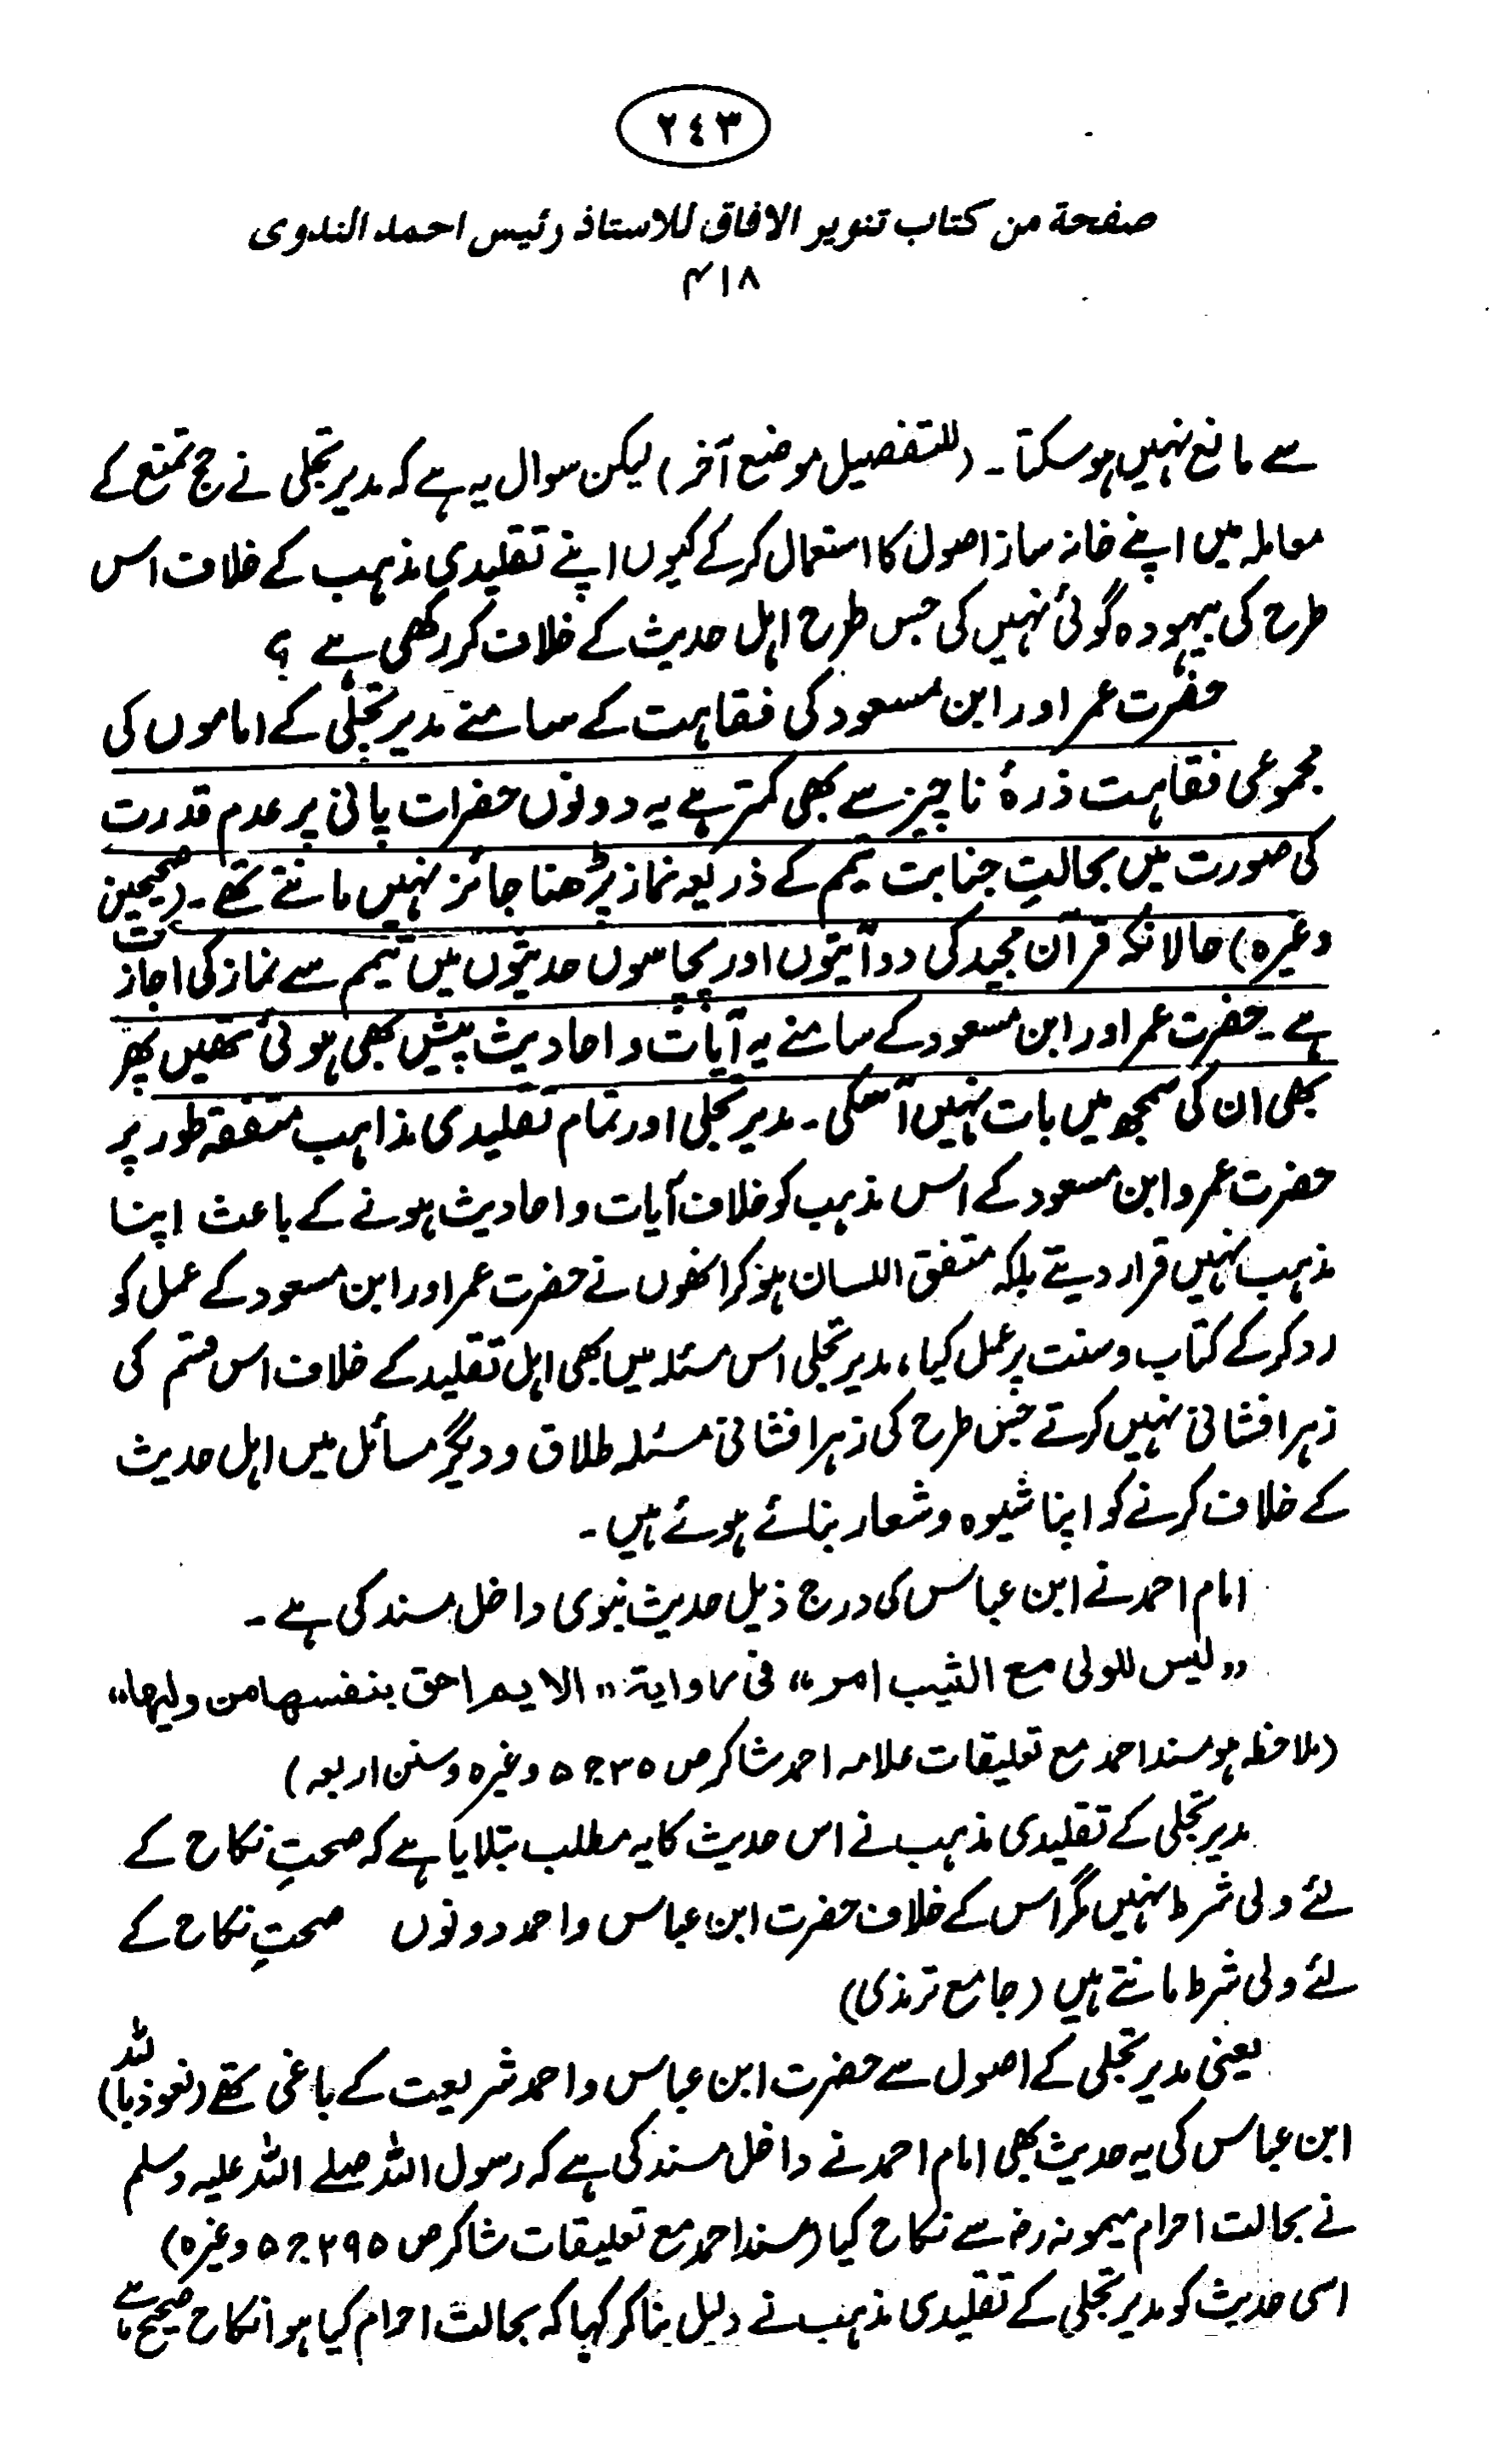 ٢٤٣
صفحة من كتاب تنوير الافاق للاستاذ رئيس احمد الندوى
۴۱۸
سے مانع نہیں ہو سکتا۔ (للتفصیل موضع آخر) لیکن سوال یہ ہے کہ مدیر تجلی نے حج تمتع کے
معاملہ میں اپنے خانہ ساز اصول کا استعمال کر کے کیوں اپنے تقلیدی مذہب کے خلاف اس
طرح کی بیہودہ گوئی نہیں کی جس طرح اہل حدیث کے خلاف کر رکھی ہے ؟
حضرت عمر اور ابن مسعود کی فقاہت کے سامنے مدیر تجلی کے اماموں کی
مجموعی فقاہت ذرۂ ناچیز سے بھی کمتر ہے یہ دونوں حضرات پانی پر عدم قدرت
کی صورت میں بحالتِ جنابت تیمم کے ذریعہ نماز پڑھنا جائز نہیں مانتے تھے۔ (صحیحین
وغیرہ) حالانکہ قرآن مجید کی دو آیتوں اور پچاسوں حدیثوں میں تیمم سے نماز کی اجازت
ہے۔ حضرت عمر اور ابن مسعود کے سامنے یہ آیات و احادیث پیش بھی ہوئی تھیں پھر
بھی ان کی سمجھ میں بات نہیں آسکی۔ مدیر تجلی اور تمام تقلیدی مذاہب متفقہ طور پر
حضرت عمر و ابن مسعود کے اس مذہب کو خلاف آیات و احادیث ہونے کے باعث اپنا
مذہب نہیں قرار دیتے بلکہ متفق اللسان ہو کر انھوں نے حضرت عمر اور ابن مسعود کے عمل کو
رد کر کے کتاب و سنت پر عمل کیا، مدیر تجلی اس مسئلہ میں بھی اہل تقلید کے خلاف اس قسم کی
زہر افشانی نہیں کرتے جس طرح کی زہر افشانی مسئلہ طلاق و دیگر مسائل میں اہل حدیث
کے خلاف کرنے کو اپنا شیوہ و شعار بنائے ہوئے ہیں۔
امام احمد نے ابن عباس کی درج ذیل حدیث نبوی داخل مسند کی ہے۔
”لیس للولی مع الثیب امر“ فی روایۃ ”الایم احق بنفسھا من ولیھا“
(ملاحظہ ہو مسند احمد مع تعلیقات علامہ احمد شاکر ص ۳۵ ج ۵ وغیرہ و سنن اربعہ)
مدیر تجلی کے تقلیدی مذہب نے اس حدیث کا یہ مطلب بتلایا ہے کہ صحتِ نکاح کے
لئے ولی شرط نہیں مگر اس کے خلاف حضرت ابن عباس و احمد دونوں صحتِ نکاح کے
لئے ولی شرط مانتے ہیں (جامع ترمذی)
یعنی مدیر تجلی کے اصول سے حضرت ابن عباس و احمد شریعت کے باغی تھے (نعوذ باللہ)
ابن عباس کی یہ حدیث بھی امام احمد نے داخل مسند کی ہے کہ رسول اللہ صلے اللہ علیہ وسلم
نے بحالت احرام میمونہ رض سے نکاح کیا (مسند احمد مع تعلیقات شاکر ص ۲۹۵ ج ۵ وغیرہ)
اسی حدیث کو مدیر تجلی کے تقلیدی مذہب نے دلیل بنا کر کہا کہ بحالت احرام کیا ہوا نکاح صحیح ہے